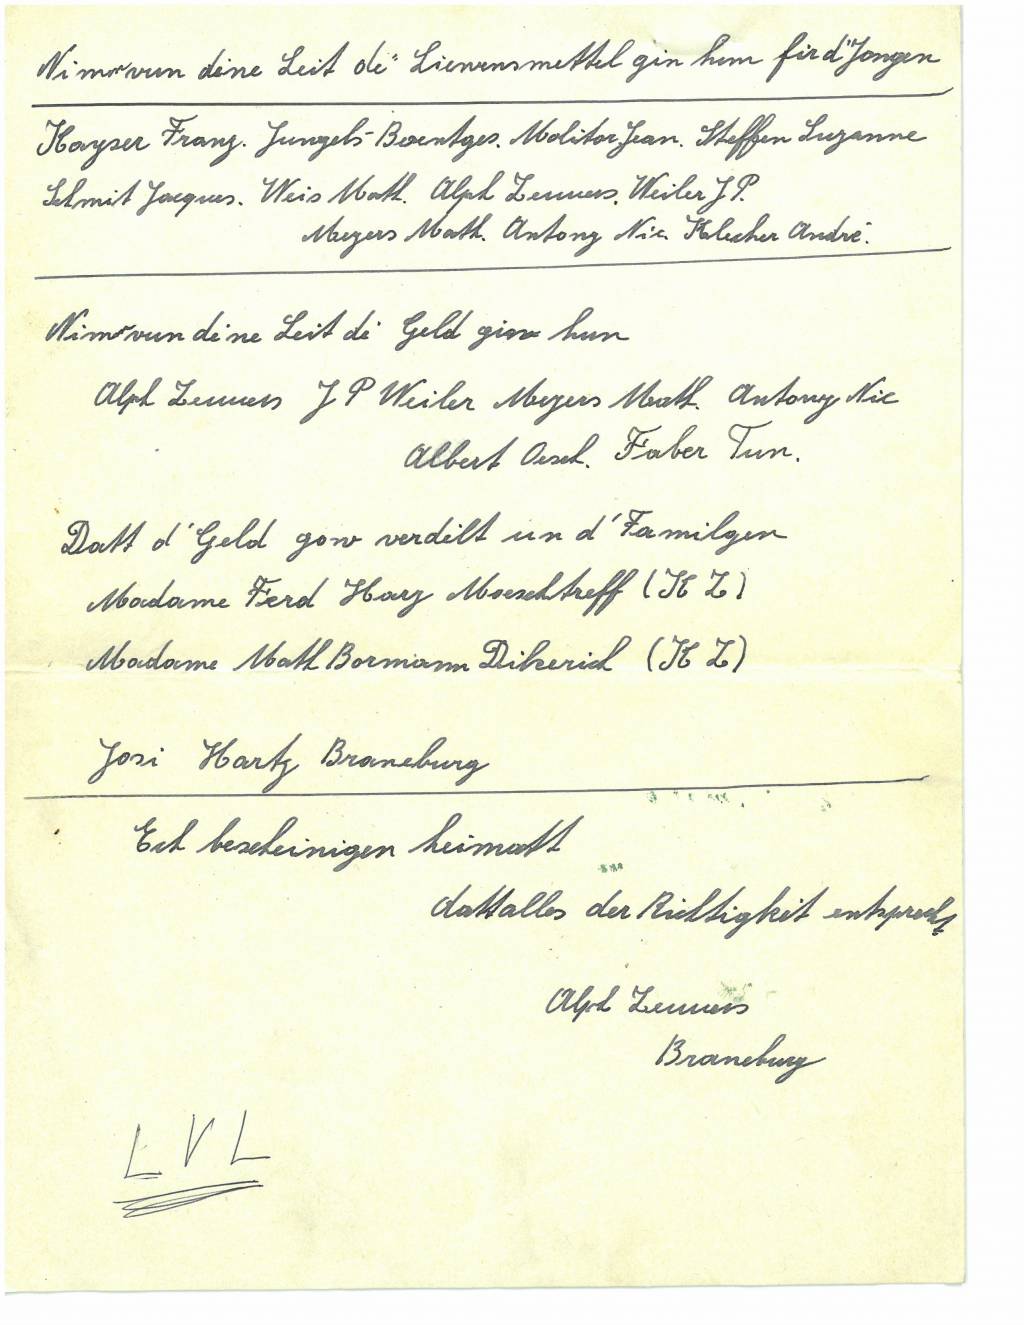 Nimm vun dene Leit dé Liewensmettel gin hun fir d'Jongen
Kayser Franz. Jungels-Boentges. Molitor Jean. Steffen Suzanne
Schmit Jacques. Weis Math. Alph Zenners. Weiler J P.
Meyers Math. Antony Nic. Klecker André.
Nimm vun dene Leit di Geld gin hun
Alph Zenners J P Weiler Meyers Math. Antony Nic
Albert Oesch. Faber Tun.
Datt d'Geld gow verdélt un d'Familgen
Madame Ferd Harz Moeschtreff (K Z)
Madame Math Bormann Dikerich (K Z)
Josi Hartz Braneburg
Ech bescheinigen heimatt
datt alles der Richtigkét entsprecht
Alph Zenners
Braneburg
L V L